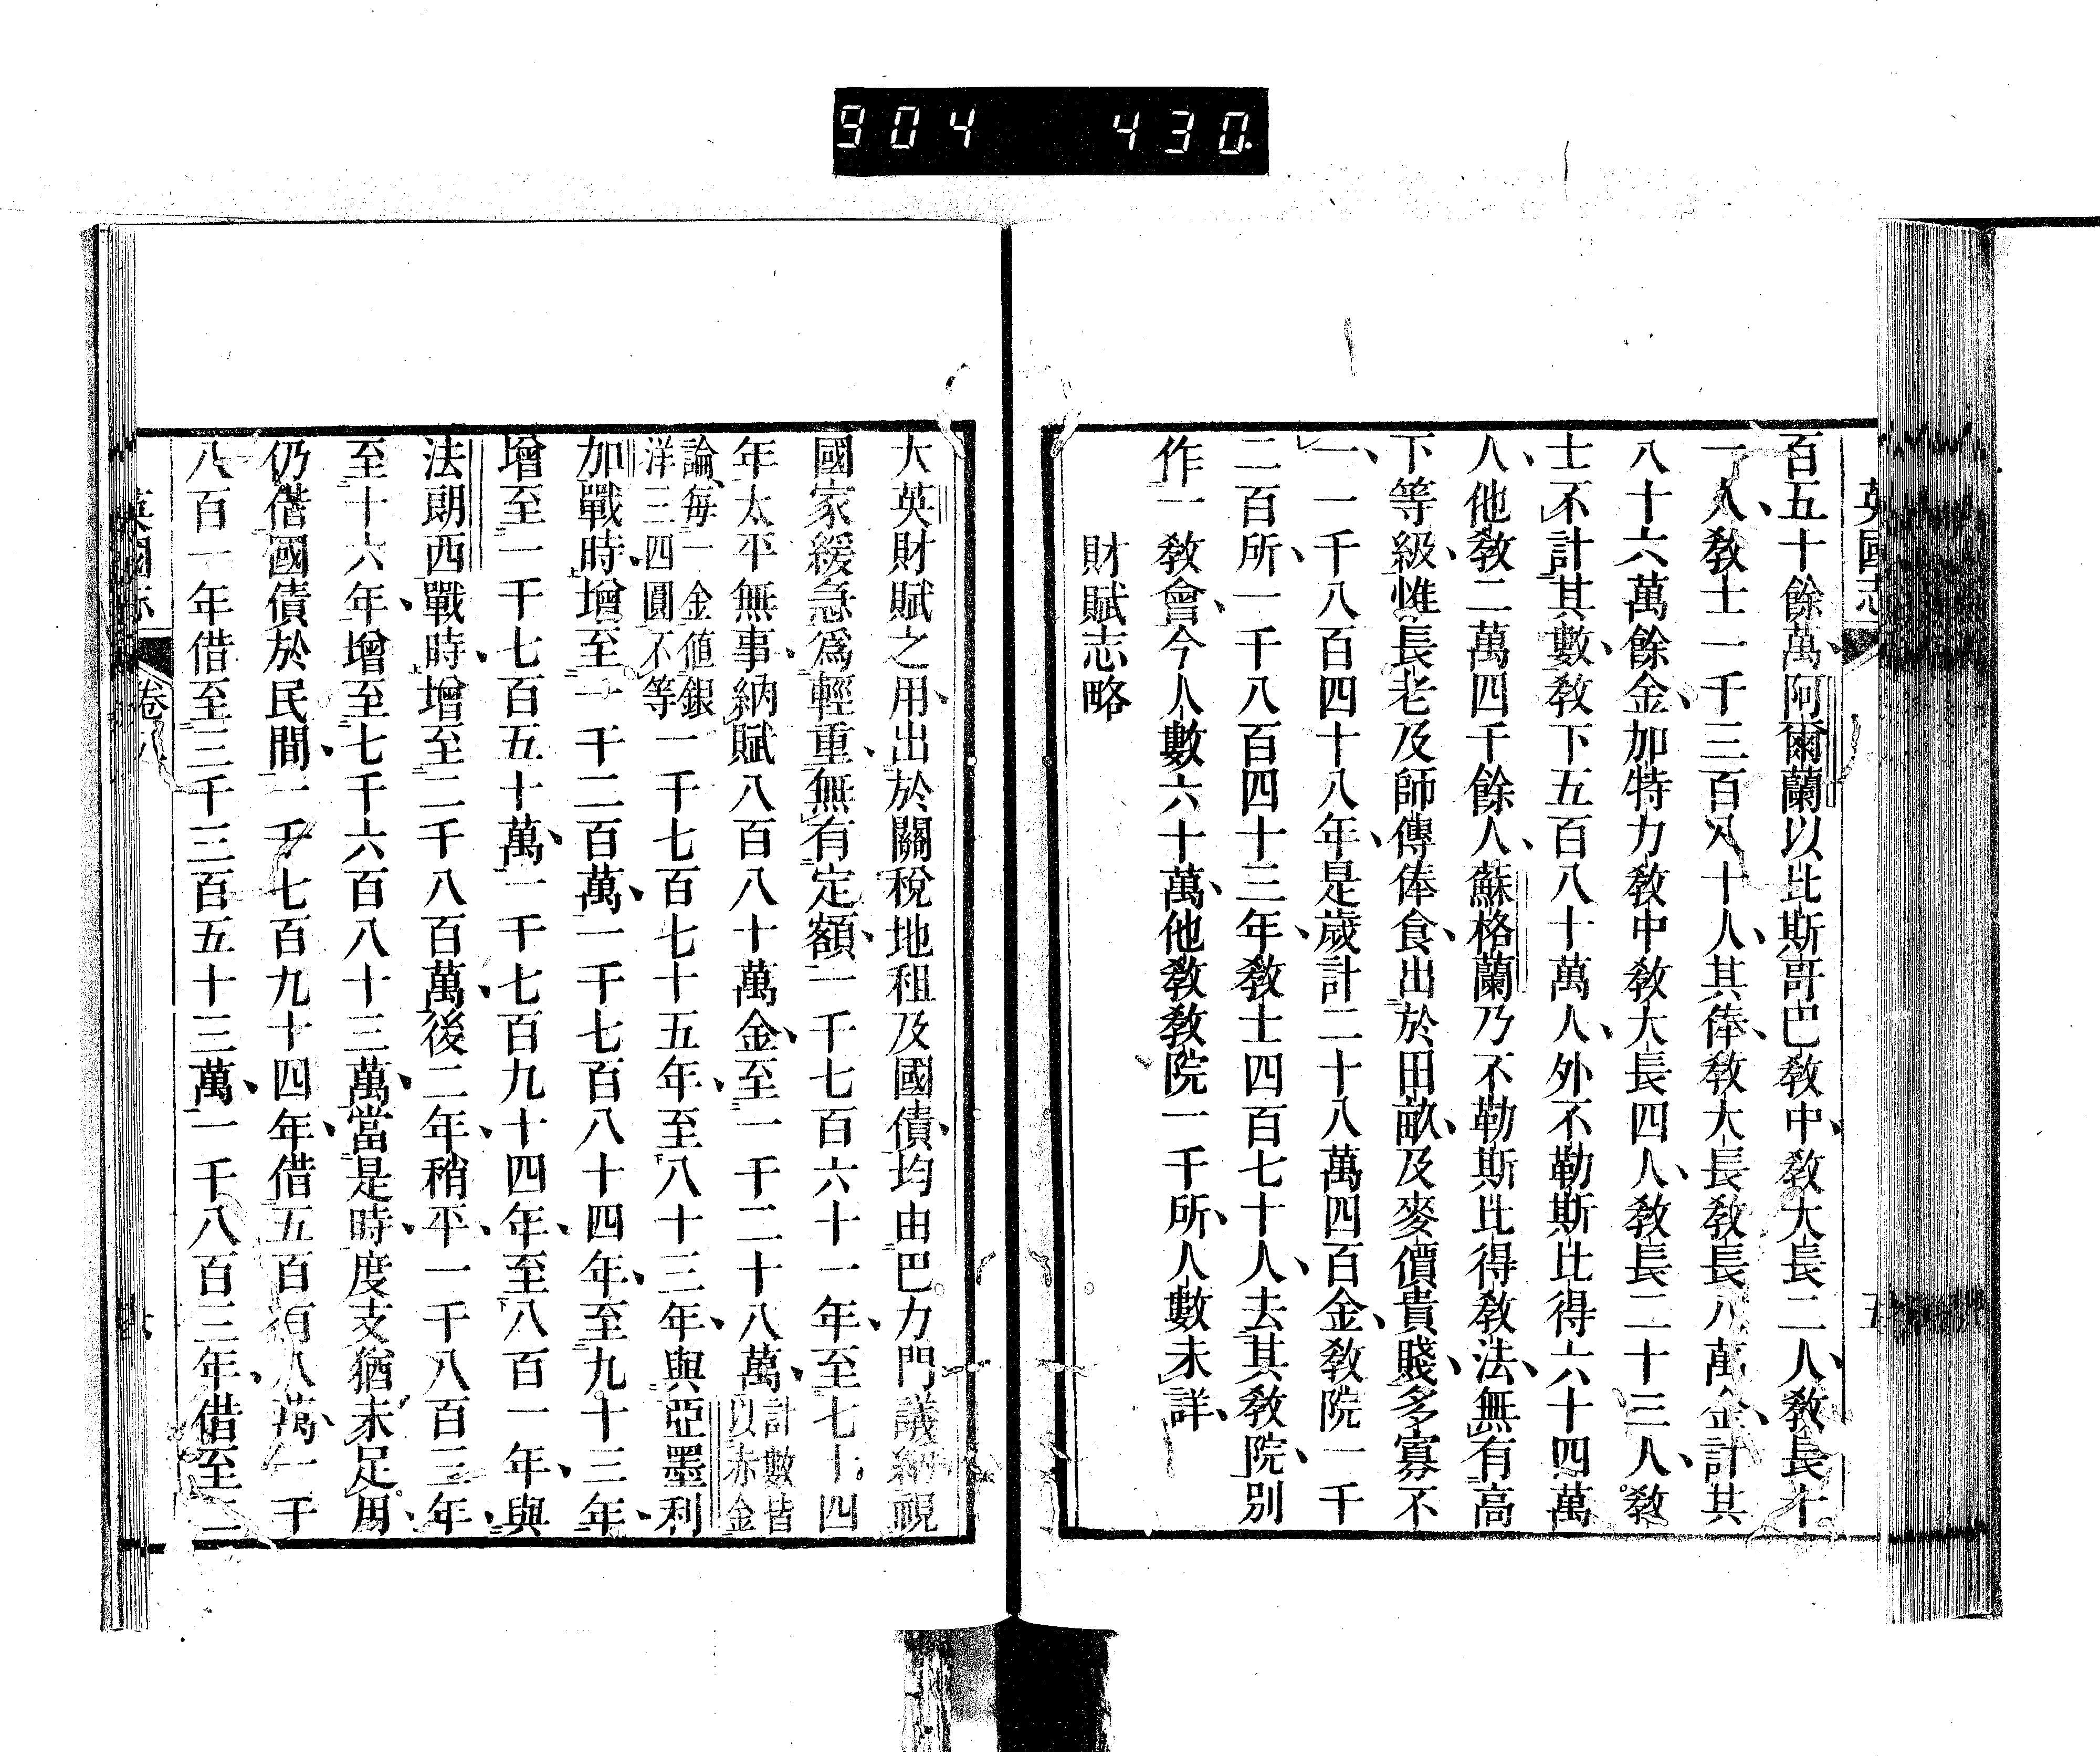 904 430
英國志
百五十餘萬、阿爾蘭以比斯哥巴教中、教大長二人、教長十
一人、教士一千三百八十人、其俸、教大長教長八萬金、計其
八十六萬餘金、加特力教中教大長四人、教長二十三人、教
士不計其數、教下五百八十萬人、外不勒斯比得六十四萬
人、他教二萬四千餘人、蘇格蘭乃不勒斯比得教法、無有高
下等級、惟長老及師傅俸食、出於田畝、及麥價貴賤、多寡不
一、一千八百四十八年、是歲計二十八萬四百金、教院一千
二百所、一千八百四十三年、教士四百七十人、去其教院、別
作一教會、今人數六十萬、他教教院一千所、人數未詳、
財賦志略
大英財賦之用、出於關稅地租及國債、均由巴力門議納視
國家緩急爲輕重、無有定額、一千七百六十一年、至七十四
年太平無事、納賦八百八十萬金、至一千二十八萬、計數皆以赤金
論、每一金値銀洋三四圓不等一千七百七十五年、至八十三年、與亞墨利
加戰時、增至一千二百萬、一千七百八十四年、至九十三年、
增至一千七百五十萬、一千七百九十四年、至八百一年、與
法朗西戰時、增至二千八百萬、後二年、稍平、一千八百三年、
至十六年、增至七千六百八十三萬、當是時、度支猶未足用、
仍借國債於民間、一千七百九十四年、借五百八萬、一千
八百一年借至三千三百五十三萬、一千八百三年、借至一
英國志 卷八 六